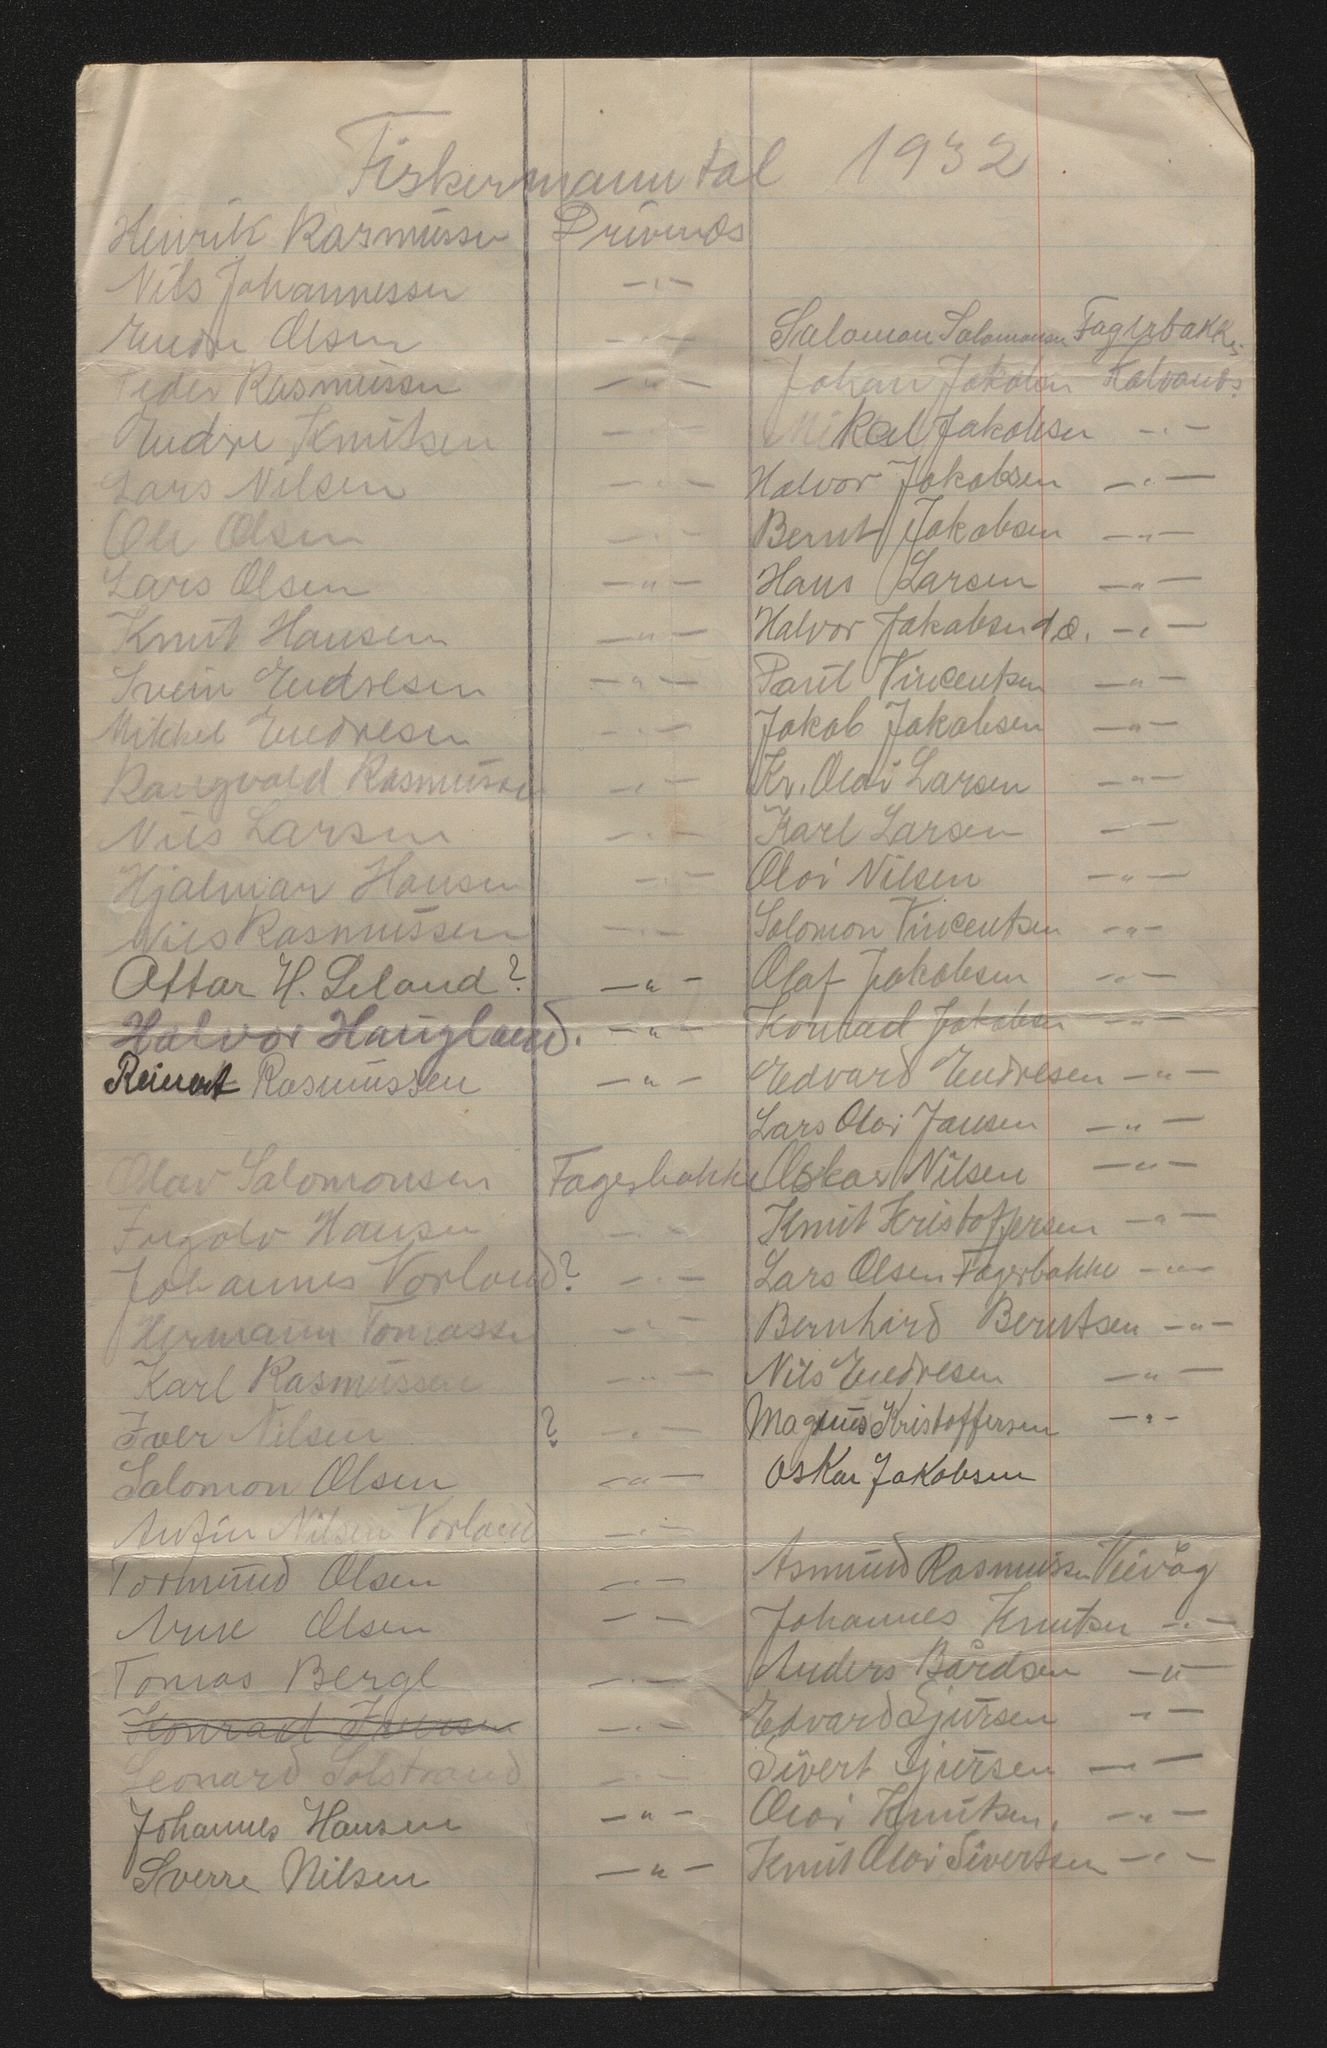 Fiskermanntal 1932
Henrik Rasmussen Drivenes
Nils Johannessen -"-
Endre Olsen -"-
Peder Rasmussen -"-
Endre Knutsen -"-
Lars Nilsen -"-
Ole Olsen -"-
Lars Olsen -"-
Knut Hansen -"-
Svein Endresen -"-
Mikkel Endresen -"-
Rangvald Rasmussen -"-
Nils Larsen -"-
Hjalmar Hansen -"-
Nils Rasmussen -"-
Ottar H. Leland? -"-
Halvor Haugland. -"-
Reinert Rasmussen -"-
Olav Salomonsen Fagerbakke
Ingolv Hansen -"-
Johannes Vorland? -"-
Hermann Tomassen -"-
Karl Rasmussen -"-
Iver Nilsen ? -"-
Salomon Olsen -"-
Anfin Nilsen Vorland -"-
Tormund Olsen -"-
Arne Olsen -"-
Tomas Berge -"-
Konrad -"-
Leonard Solstrand -"-
Johannes Hansen -"-
Sverre Nilsen -"-
Salomon Salomonsen Fagerbakke
Johan Jakobsen Kalvanes
Mikal Jakobsen -"-
Halvor Jakobsen -"-
Bernt Jakobsen -"-
Hans Larsen -"-
Halvor Jakobsen d.æ. -"-
Paul Vincentsen -"-
Jakob Jakobsen -"-
Kr. Olai Larsen -"-
Karl Larsen -"-
Olai Nilsen -"-
Solomon Vincentsen -"-
Olaf Jakobsen -"-
Konrad Jakobsen -"-
Edvard Endresen -"-
Lars Olai Jansen -"-
Oskar Nilsen -"-
Knut Kristoffersen -"-
Lars Olsen Fagerbakke -"-
Bernhard Berntsen -"-
Nils Endresen -"-
Magnus Kristoffersen -"-
Oskar Jakobsen
Asmund Rasmussen Veivåg
Johannes Knutsen -"-
Anders Bårdsen -"-
Edvard Sjursen -"-
Sivert Sjursen -"-
Olai Knutsen. -"-
Knut Olai Sivertsen -"-